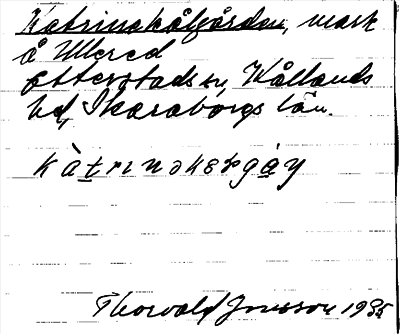 Katrinekålgården, mark
å Ullered
Otterstads sn, Kållands
hd, Skaraborgs län.
kàtrɪnəkɛ̀gày
Thorvald Jonsson 1935